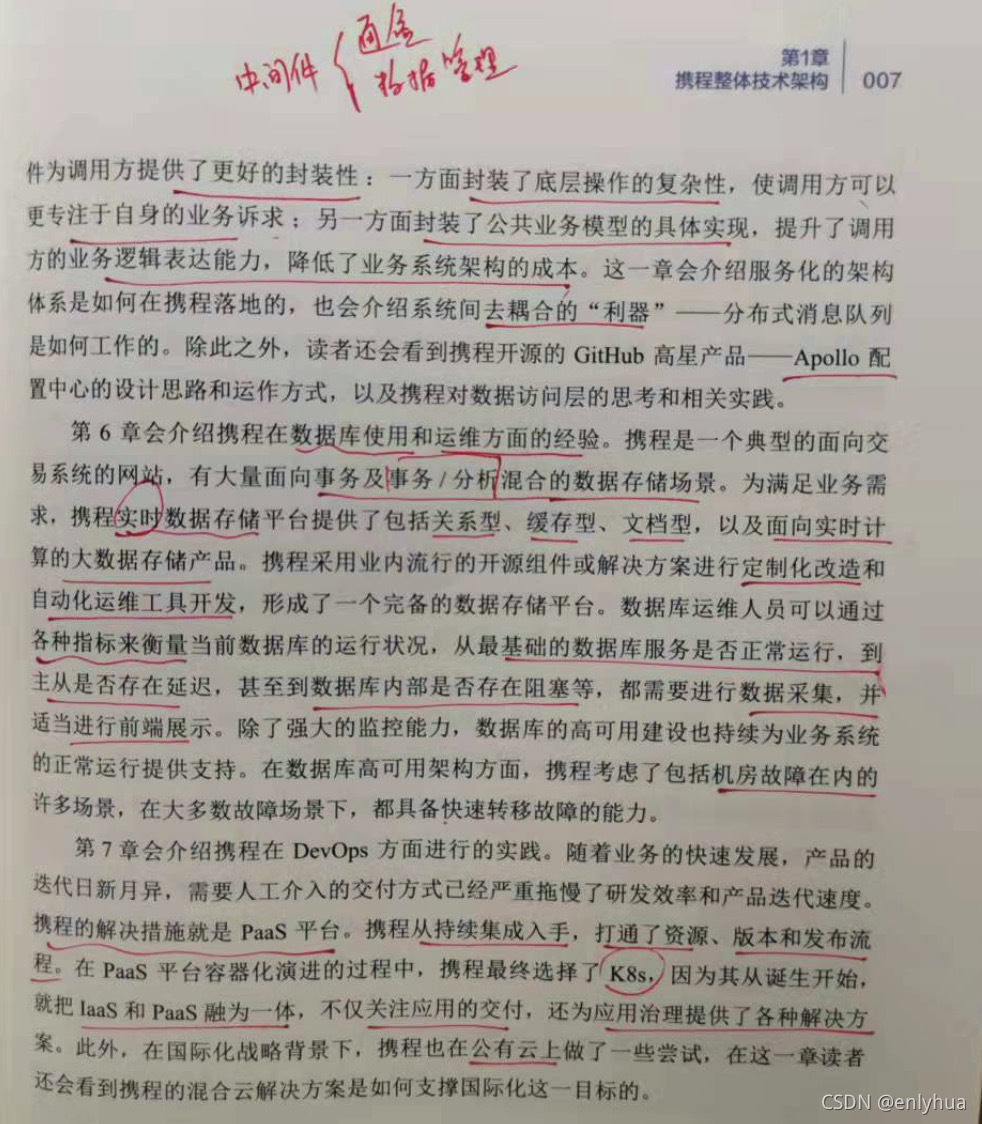 通信
中间件
数据管理
第1章
携程整体技术架构 007
件为调用方提供了更好的封装性：一方面封装了底层操作的复杂性，使调用方可以
更专注于自身的业务诉求；另一方面封装了公共业务模型的具体实现，提升了调用
方的业务逻辑表达能力，降低了业务系统架构的成本。这一章会介绍服务化的架构
体系是如何在携程落地的，也会介绍系统间去耦合的“利器”——分布式消息队列
是如何工作的。除此之外，读者还会看到携程开源的 GitHub 高星产品——Apollo 配
置中心的设计思路和运作方式，以及携程对数据访问层的思考和相关实践。
第 6 章会介绍携程在数据库使用和运维方面的经验。携程是一个典型的面向交
易系统的网站，有大量面向事务及事务 / 分析混合的数据存储场景。为满足业务需
求，携程实时数据存储平台提供了包括关系型、缓存型、文档型，以及面向实时计
算的大数据存储产品。携程采用业内流行的开源组件或解决方案进行定制化改造和
自动化运维工具开发，形成了一个完备的数据存储平台。数据库运维人员可以通过
各种指标来衡量当前数据库的运行状况，从最基础的数据库服务是否正常运行，到
主从是否存在延迟，甚至到数据库内部是否存在阻塞等，都需要进行数据采集，并
适当进行前端展示。除了强大的监控能力，数据库的高可用建设也持续为业务系统
的正常运行提供支持。在数据库高可用架构方面，携程考虑了包括机房故障在内的
许多场景，在大多数故障场景下，都具备快速转移故障的能力。
第 7 章会介绍携程在 DevOps 方面进行的实践。随着业务的快速发展，产品的
迭代日新月异，需要人工介入的交付方式已经严重拖慢了研发效率和产品迭代速度。
携程的解决措施就是 PaaS 平台。携程从持续集成入手，打通了资源、版本和发布流
程。在 PaaS 平台容器化演进的过程中，携程最终选择了 K8s，因为其从诞生开始，
就把 IaaS 和 PaaS 融为一体，不仅关注应用的交付，还为应用治理提供了各种解决方
案。此外，在国际化战略背景下，携程也在公有云上做了一些尝试，在这一章读者
还会看到携程的混合云解决方案是如何支撑国际化这一目标的。
CSDN @enlyhua